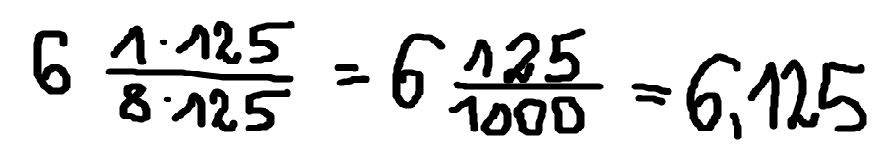 6 \frac{1 \cdot 125}{8 \cdot 125} = 6 \frac{125}{1000} = 6,125